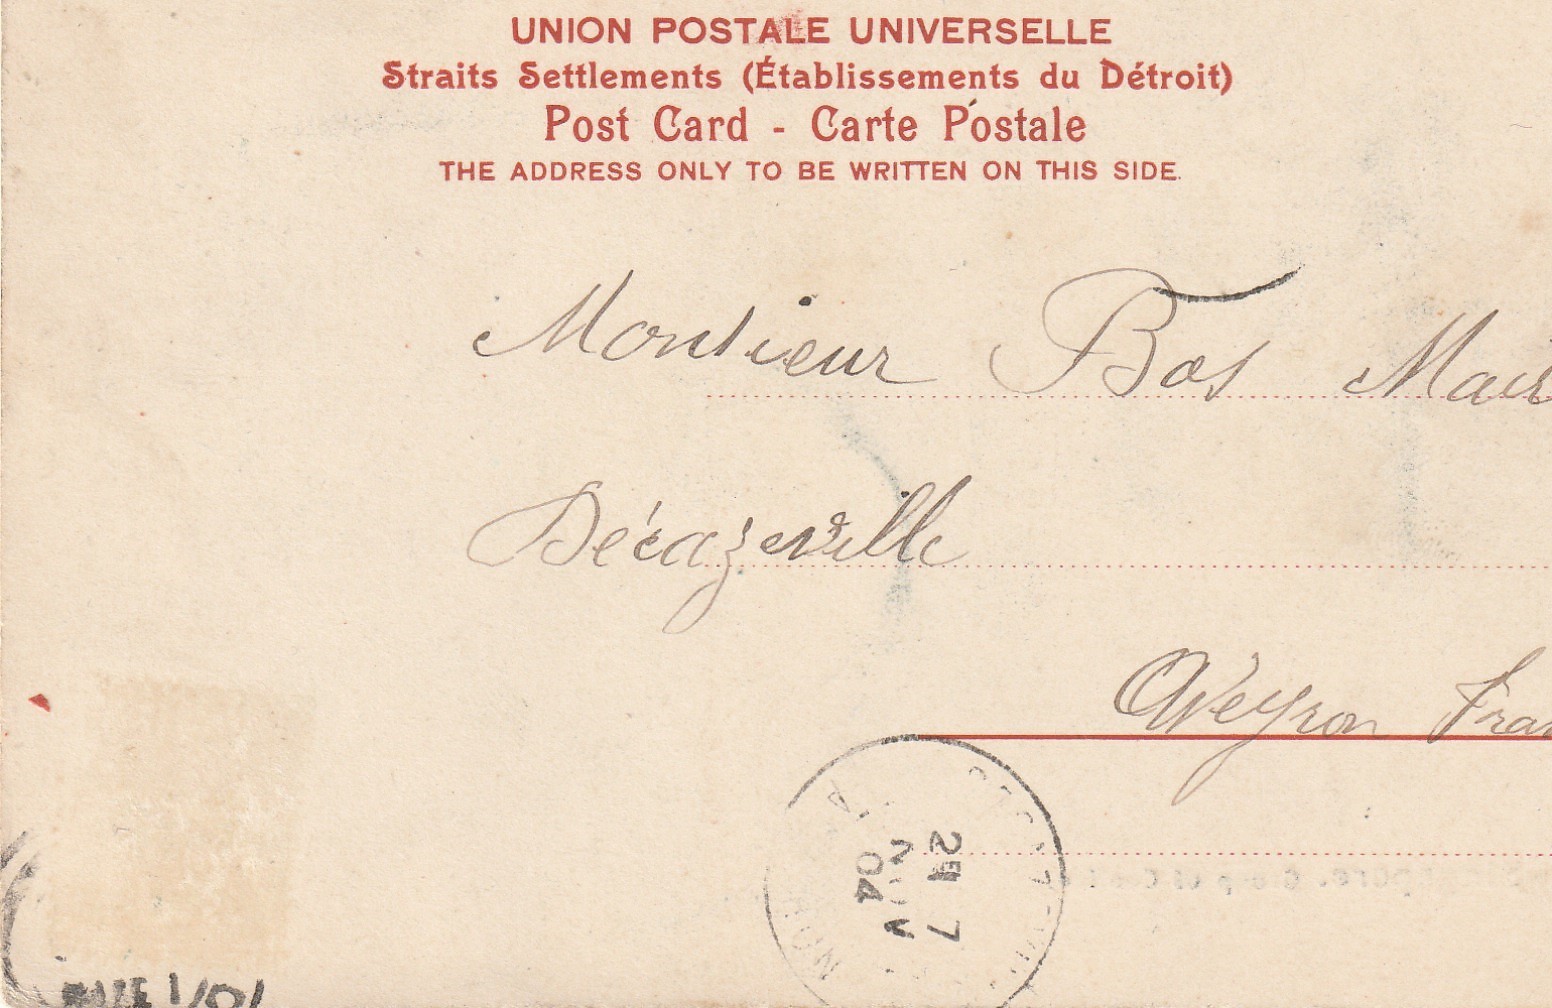 UNION POSTALE UNIVERSELLE
Straits Settlements (Établissements du Détroit)
Post Card - Carte Postale
THE ADDRESS ONLY TO BE WRITTEN ON THIS SIDE.
Monsieur Bos Mair
Décazeville
Aveyron Fran
NOV
04